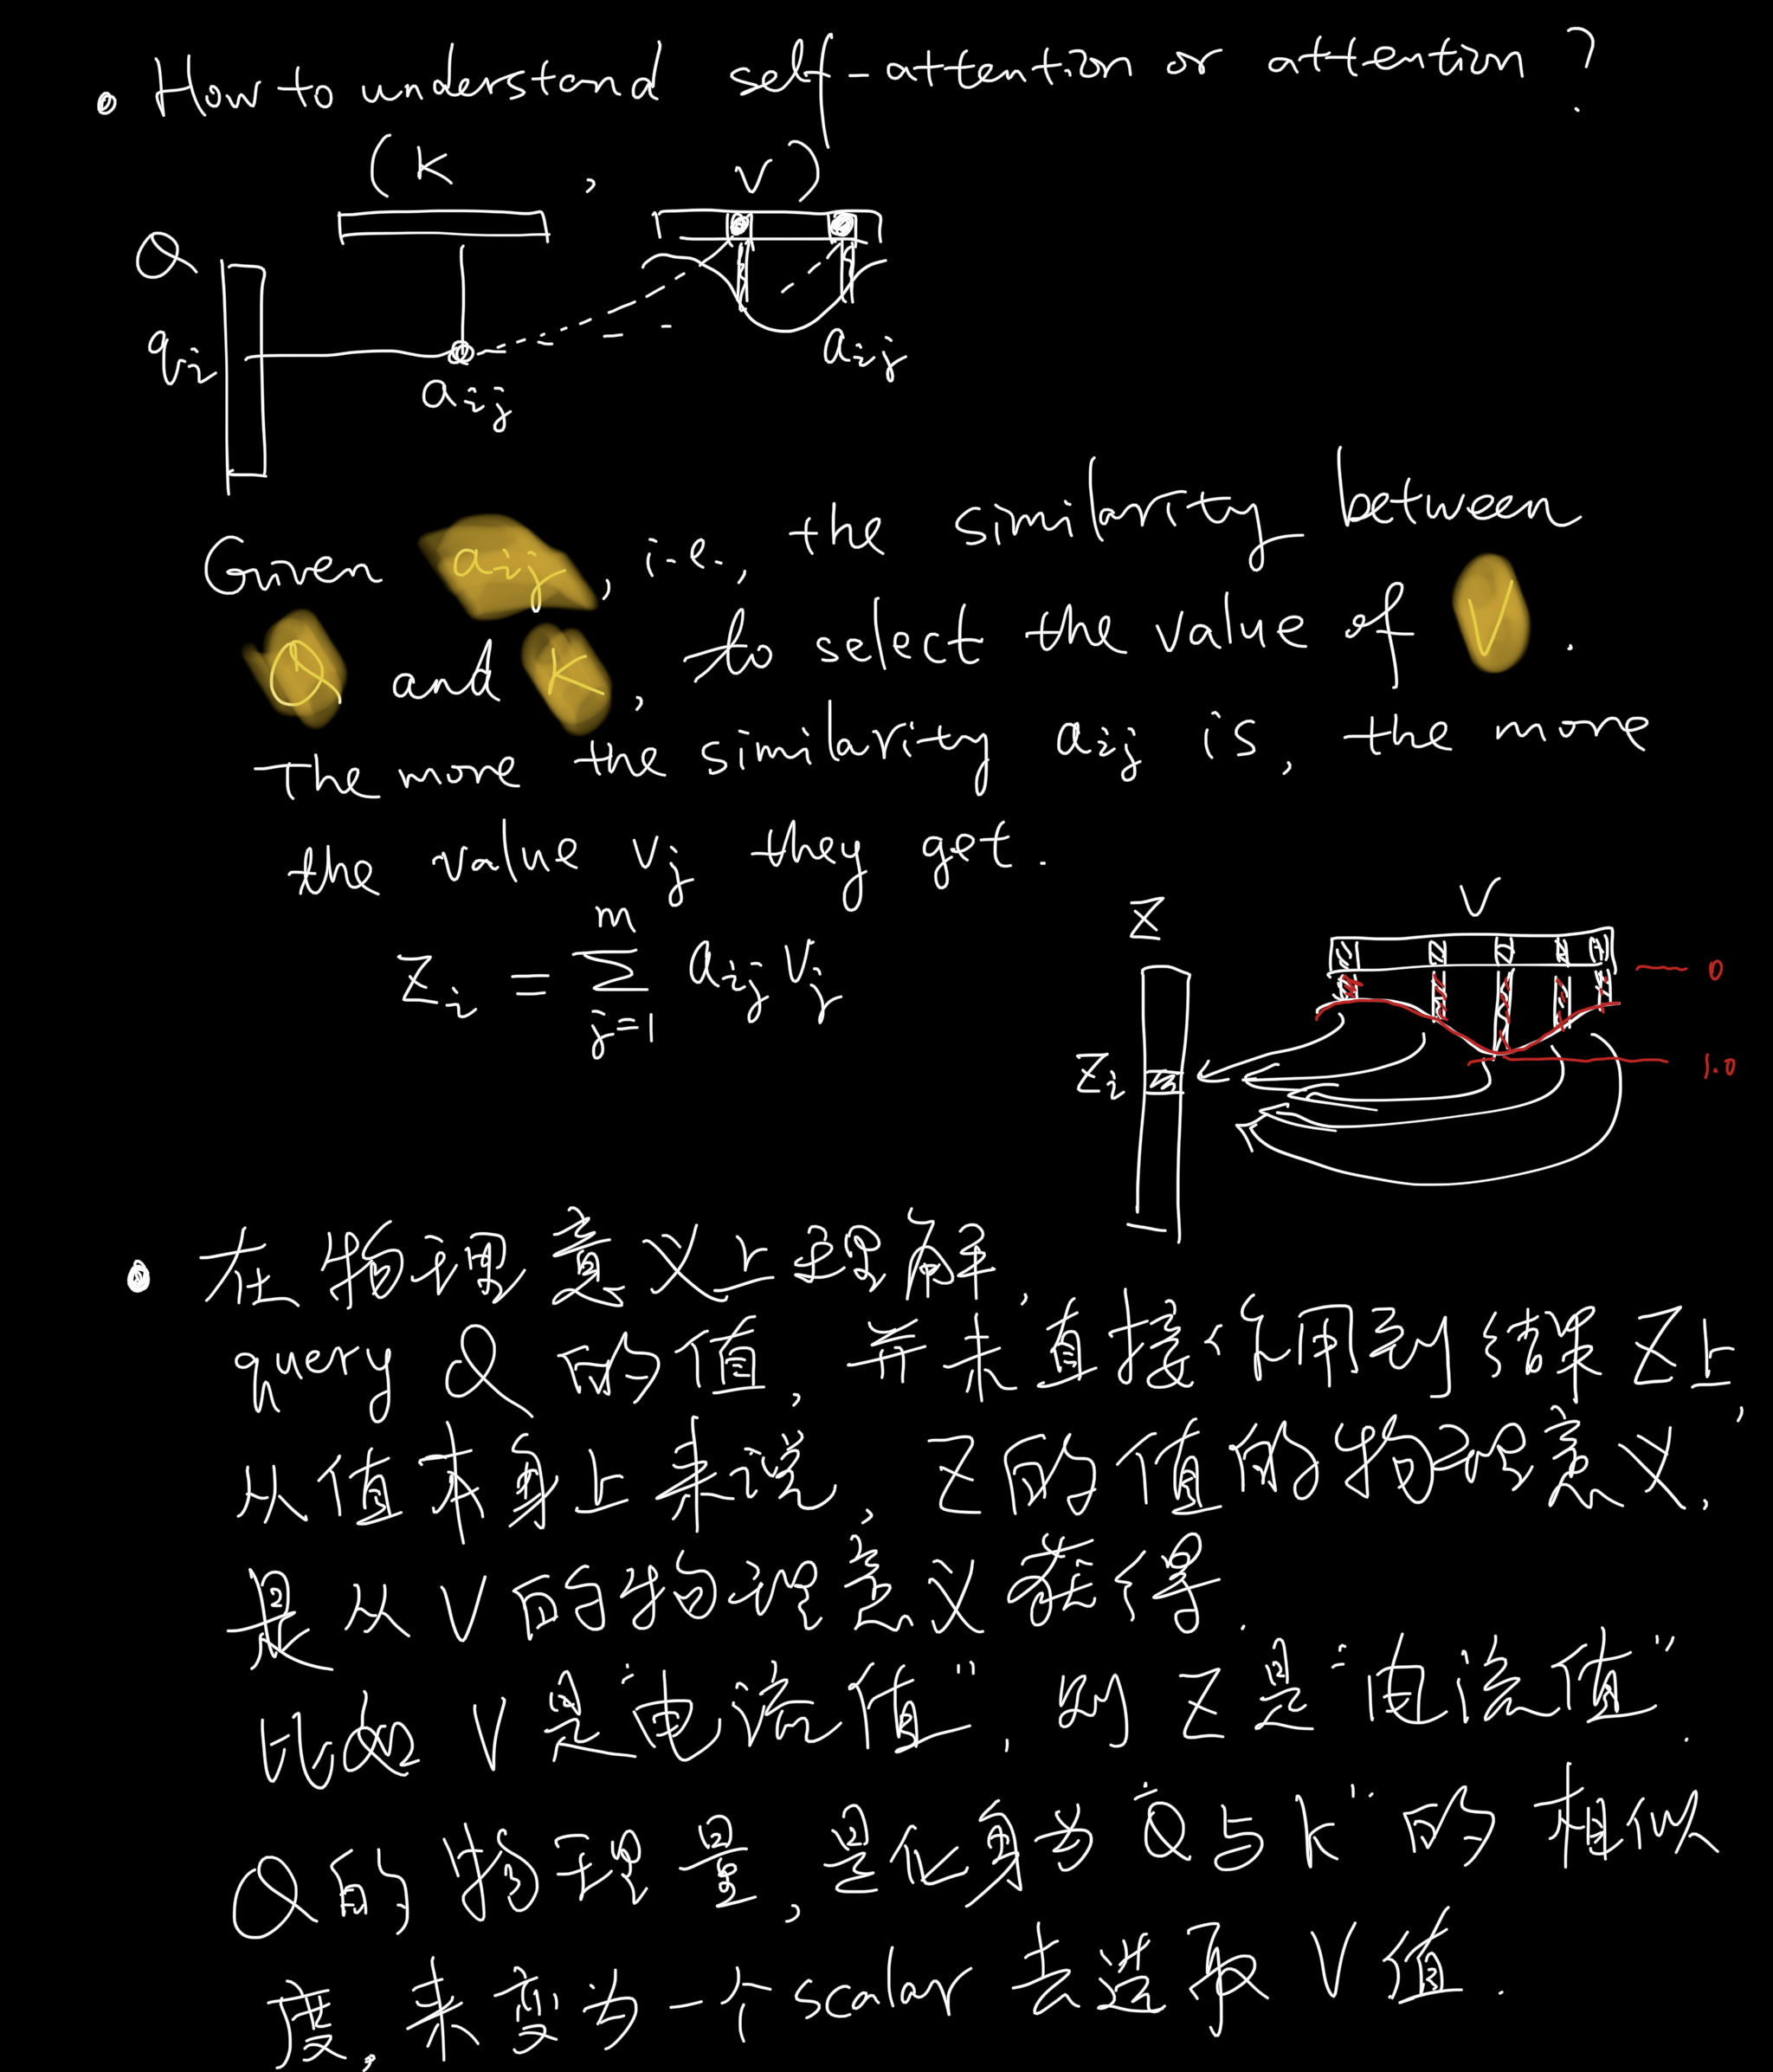 How to understand self-attention or attention ?
(K , V)
Q
qi
aij
aij
Given aij, i.e., the similarity between
Q and K, to select the value of V.
The more the similarity aij is, the more
the value vj they get.
Zi = Σ_{j=1}^{m} aij vj
Z
V
0
1.0
Zi
在物理意义上理解,
query Q 的值, 并未直接作用到结果Z上,
从值本身上来说, Z的值的物理意义,
是从V的物理意义获得.
比如V是“电流值”, 则Z是“电流值”.
Q的物理量, 是化身为“Q与K”的相似
度, 来变为一个scalar去选取V值.